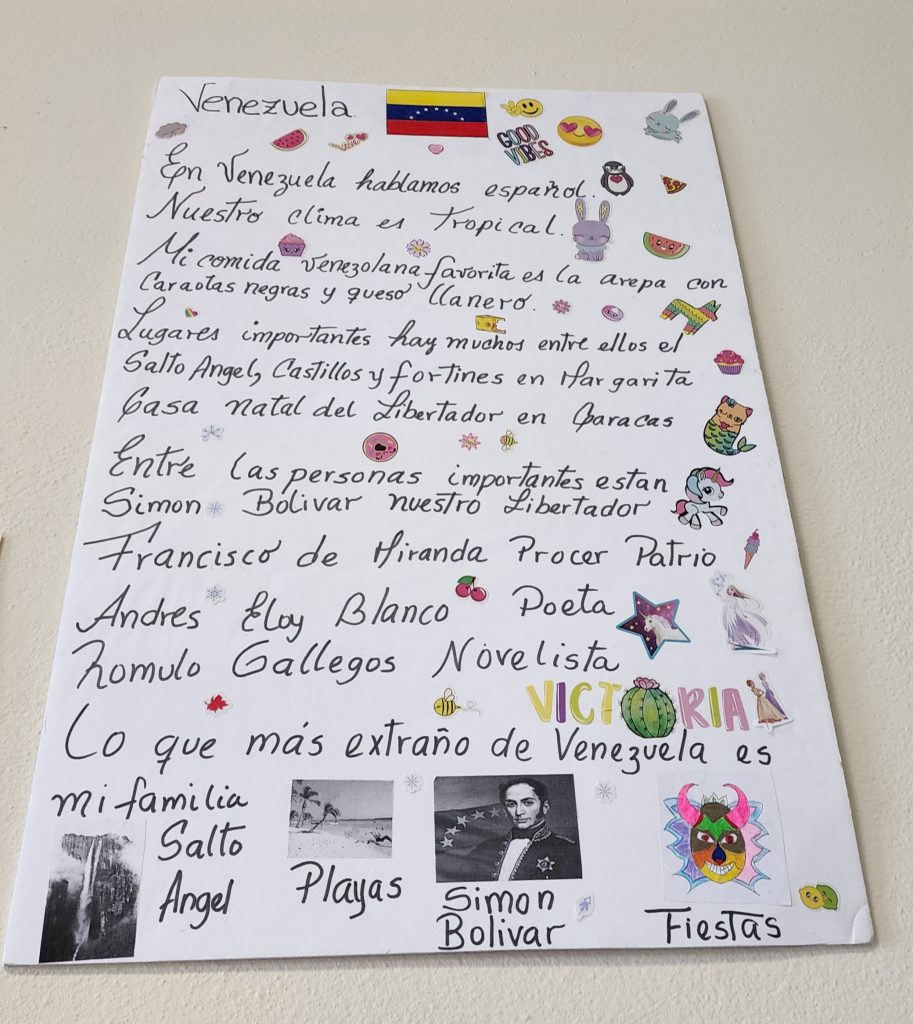 Venezuela
GOOD
VIBES
Love
En Venezuela hablamos español.
Nuestro clima es Tropical.
Mi comida venezolana favorita es la arepa con
Caraotas negras y queso llanero.
Lugares importantes hay muchos entre ellos el
Salto Angel, Castillos y fortines en Margarita
Casa natal del Libertador en Caracas
Entre las personas importantes estan
Simon Bolivar nuestro Libertador
Francisco de Miranda Procer Patrio
Andres Eloy Blanco Poeta
Romulo Gallegos Novelista
VICTORIA
Lo que más extraño de Venezuela es
mi familia
Salto
Angel
Playas
Simon
Bolivar
Fiestas